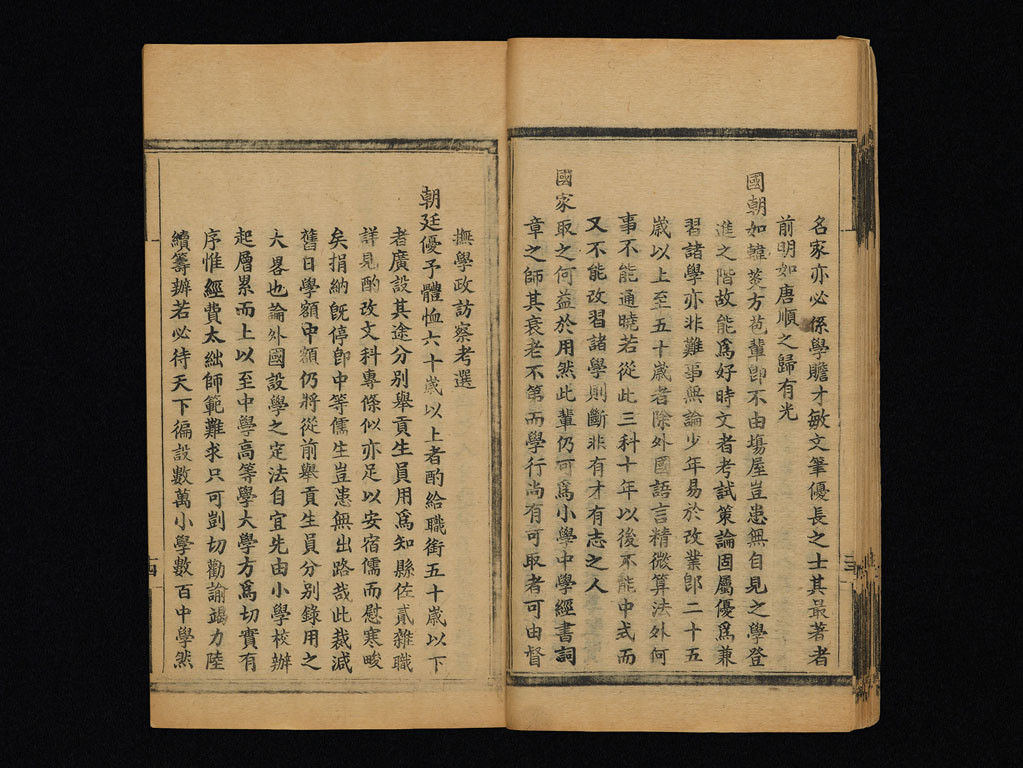 名家亦必係學贍才敏文筆優長之士其最著者
前明如唐順之歸有光
國朝如韓菼方苞輩卽不由塲屋豈患無自見之學登
進之階故能爲好時文者考試策論固屬優爲兼
習諸學亦非難事無論少年易於改業卽二十五
歲以上至五十歲者除外國語言精微算法外何
事不能通曉若從此三科十年以後不能中式而
又不能改習諸學則斷非有才有志之人
國家取之何益於用然此輩仍可爲小學中學經書詞
章之師其衰老不第而學行尚有可取者可由督
三
撫學政訪察考選
朝廷優予體恤六十歲以上者酌給職銜五十歲以下
者廣設其途分別舉貢生員用爲知縣佐貳雜職
詳見酌改文科專條似亦足以安宿儒而慰寒畯
矣捐納旣停卽中等儒生豈患無出路哉此裁減
舊日學額中額仍將從前舉貢生員分別錄用之
大畧也論外國設學之定法自宜先由小學校辦
起層累而上以至中學高等學大學方爲切實有
序惟經費太絀師範難求只可剴切勸諭竭力陸
續籌辦若必待天下徧設數萬小學數百中學然
四